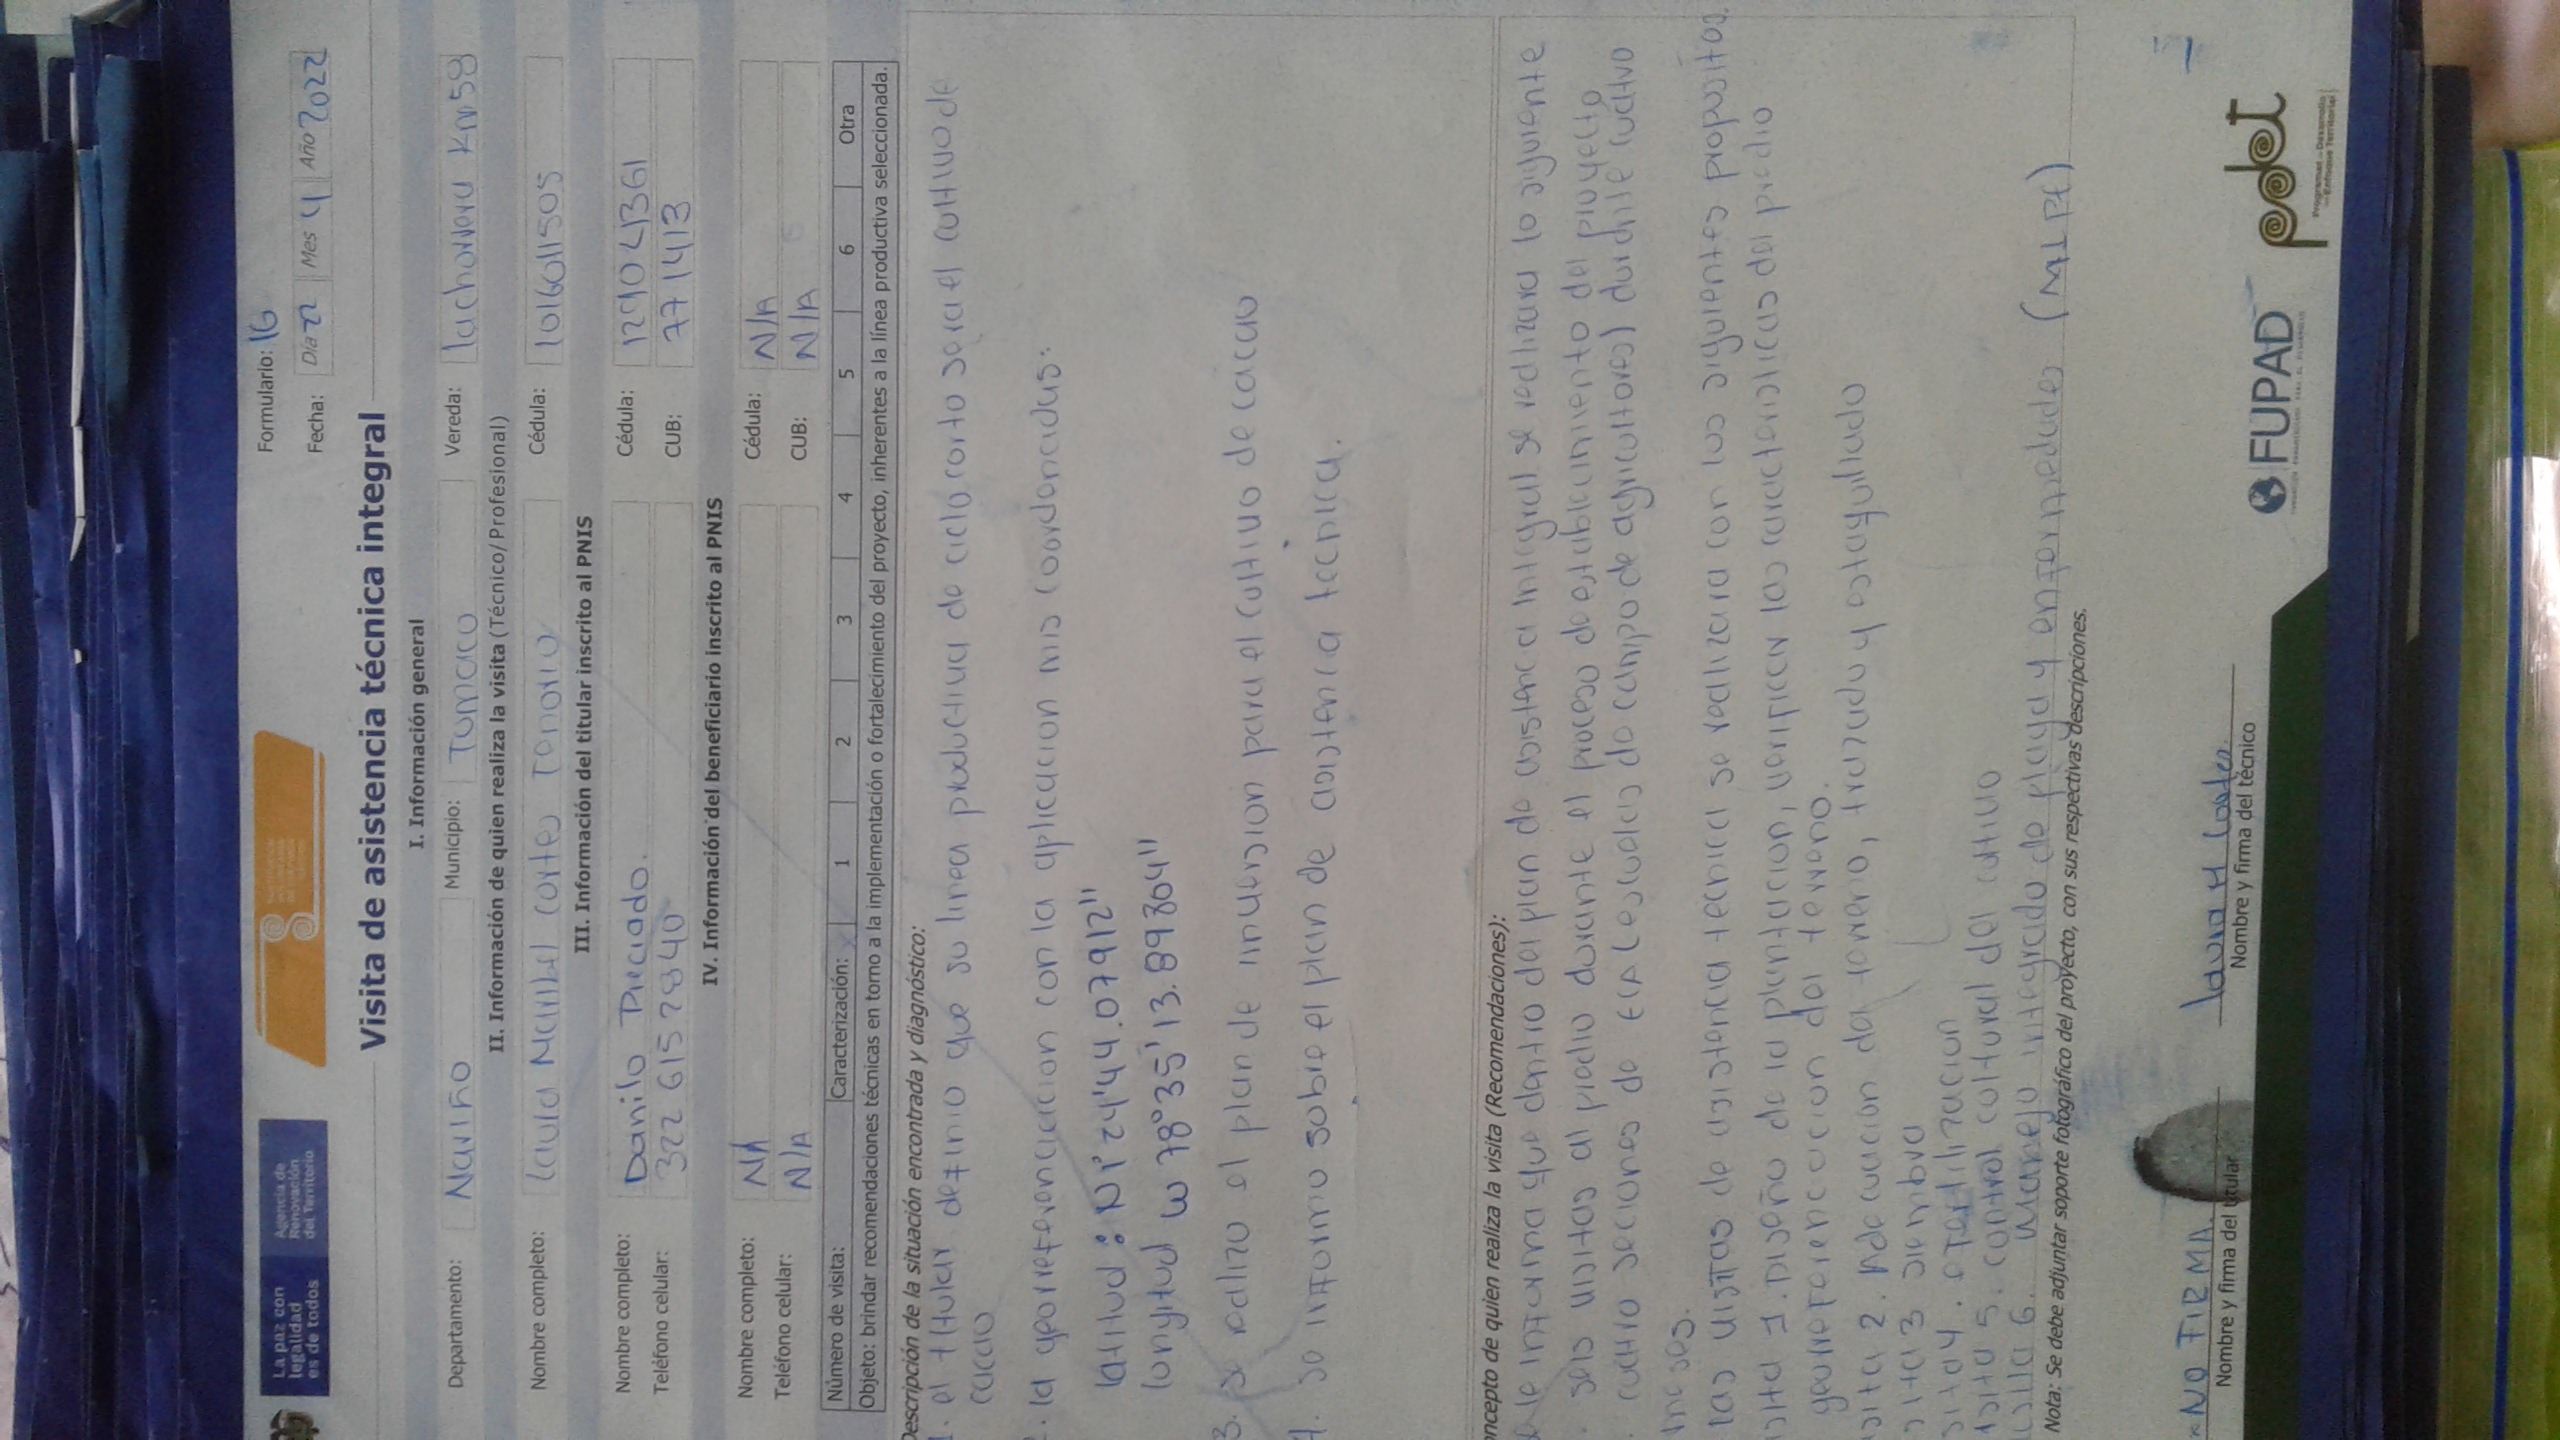 La paz con
legalidad
es de todos
Agencia de
Renovación
del Territorio
Formulario: 16
Fecha: Día 22 Mes 4 Año 2022
Visita de asistencia técnica integral
I. Información general
Departamento: Nariño Municipio: Tumaco Vereda: lachorrera Km58
II. Información de quien realiza la visita (Técnico/Profesional)
Nombre completo: Laura Maribel Cortes Tenorio Cédula:
III. Información del titular inscrito al PNIS
Nombre completo: Danilo Preciado. Cédula: 12904361
Teléfono celular: 322 615 7840 CUB: 771413
IV. Información del beneficiario inscrito al PNIS
Nombre completo: N/A Cédula: N/A
Teléfono celular: N/A CUB: N/A
Número de visita: Caracterización: x 1 2 3 4 5 6 Otra
Objeto: brindar recomendaciones técnicas en torno a la implementación o fortalecimiento del proyecto, inherentes a la línea productiva seleccionada.
Descripción de la situación encontrada y diagnóstico:
1. el titular definio que su linea productiva de ciclo corto sera el cultivo de
cacao
2. la georreferenciacion con la aplicacion mis coordenadas:
latitud: N1°24'44.07912"
longitud w 78°35'13.89804"
3. se realizo el plan de inversion para el cultivo de cacao
4. se informo sobre el plan de asistencia tecnica.
oncepto de quien realiza la visita (Recomendaciones):
se le informa que dentro del plan de asistencia integral se realizara lo siguiente
. seis visitas al predio durante el proceso de establecimiento del proyecto
. cuatro seciones de ECA (escuelas de campo de agricultores) durante cuatro
meses.
las visitas de asistencia tecnica se realizara con los siguientes propositos.
isita 1. Diseño de la plantacion, verificar las caracteristicas del predio
georeferenciacion del terreno.
isita 2. Adecuacion del terreno, trazado y estaquillado
sita 3 siembra
sita 4. fertilizacion
isita 5. control cultural del cultivo
isita 6. Manejo integrado de plaga y enfermedades (MIPE)
Nota: Se debe adjuntar soporte fotográfico del proyecto, con sus respectivas descripciones.
NO FIRMA. Laura M Cortes.
Nombre y firma del titular Nombre y firma del técnico
FUPAD
pdet
Programas de Desarrollo
con Enfoque Territorial